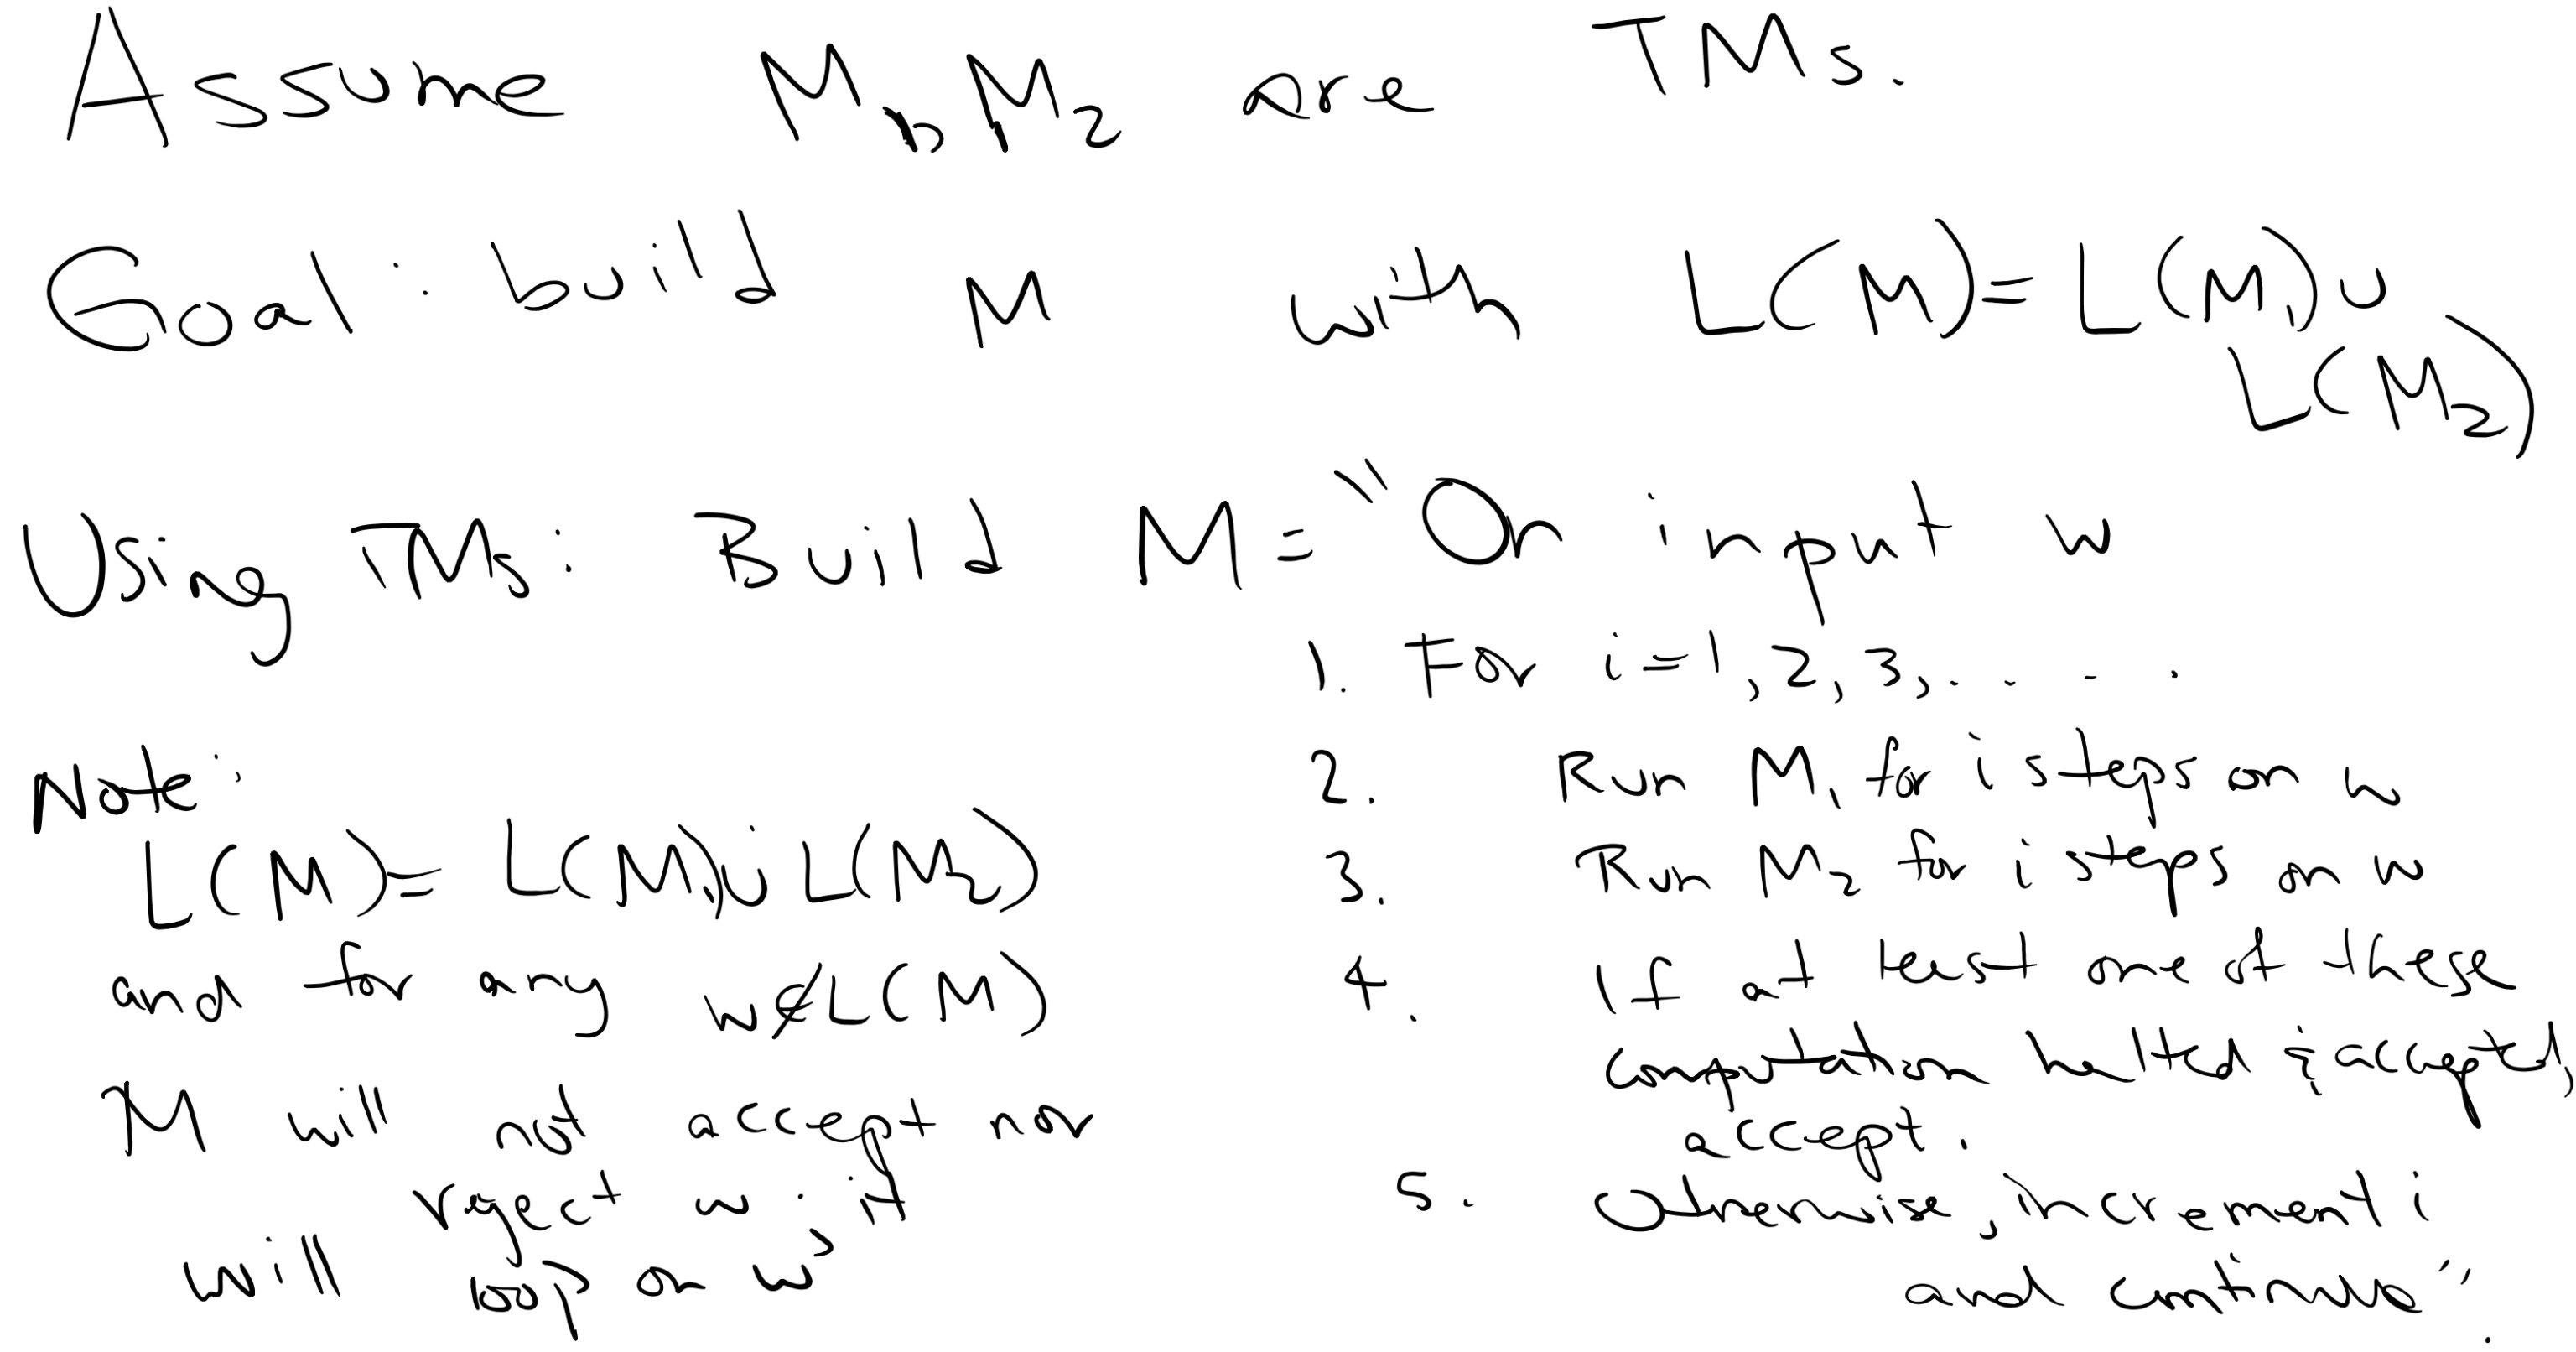 Assume M₁, M₂ are TMs.
Goal: build M with L(M) = L(M₁) ∪
L(M₂)
Using TMs: Build M = "On input w
1. For i=1, 2, 3, . . . .
2. Run M₁ for i steps on w
3. Run M₂ for i steps on w
4. If at least one of these
computation halted & accepted,
accept.
5. Otherwise, increment i
and continue".
Note:
L(M) = L(M₁) ∪ L(M₂)
and for any w∉L(M)
M will not accept nor
reject w; it
will loop on w